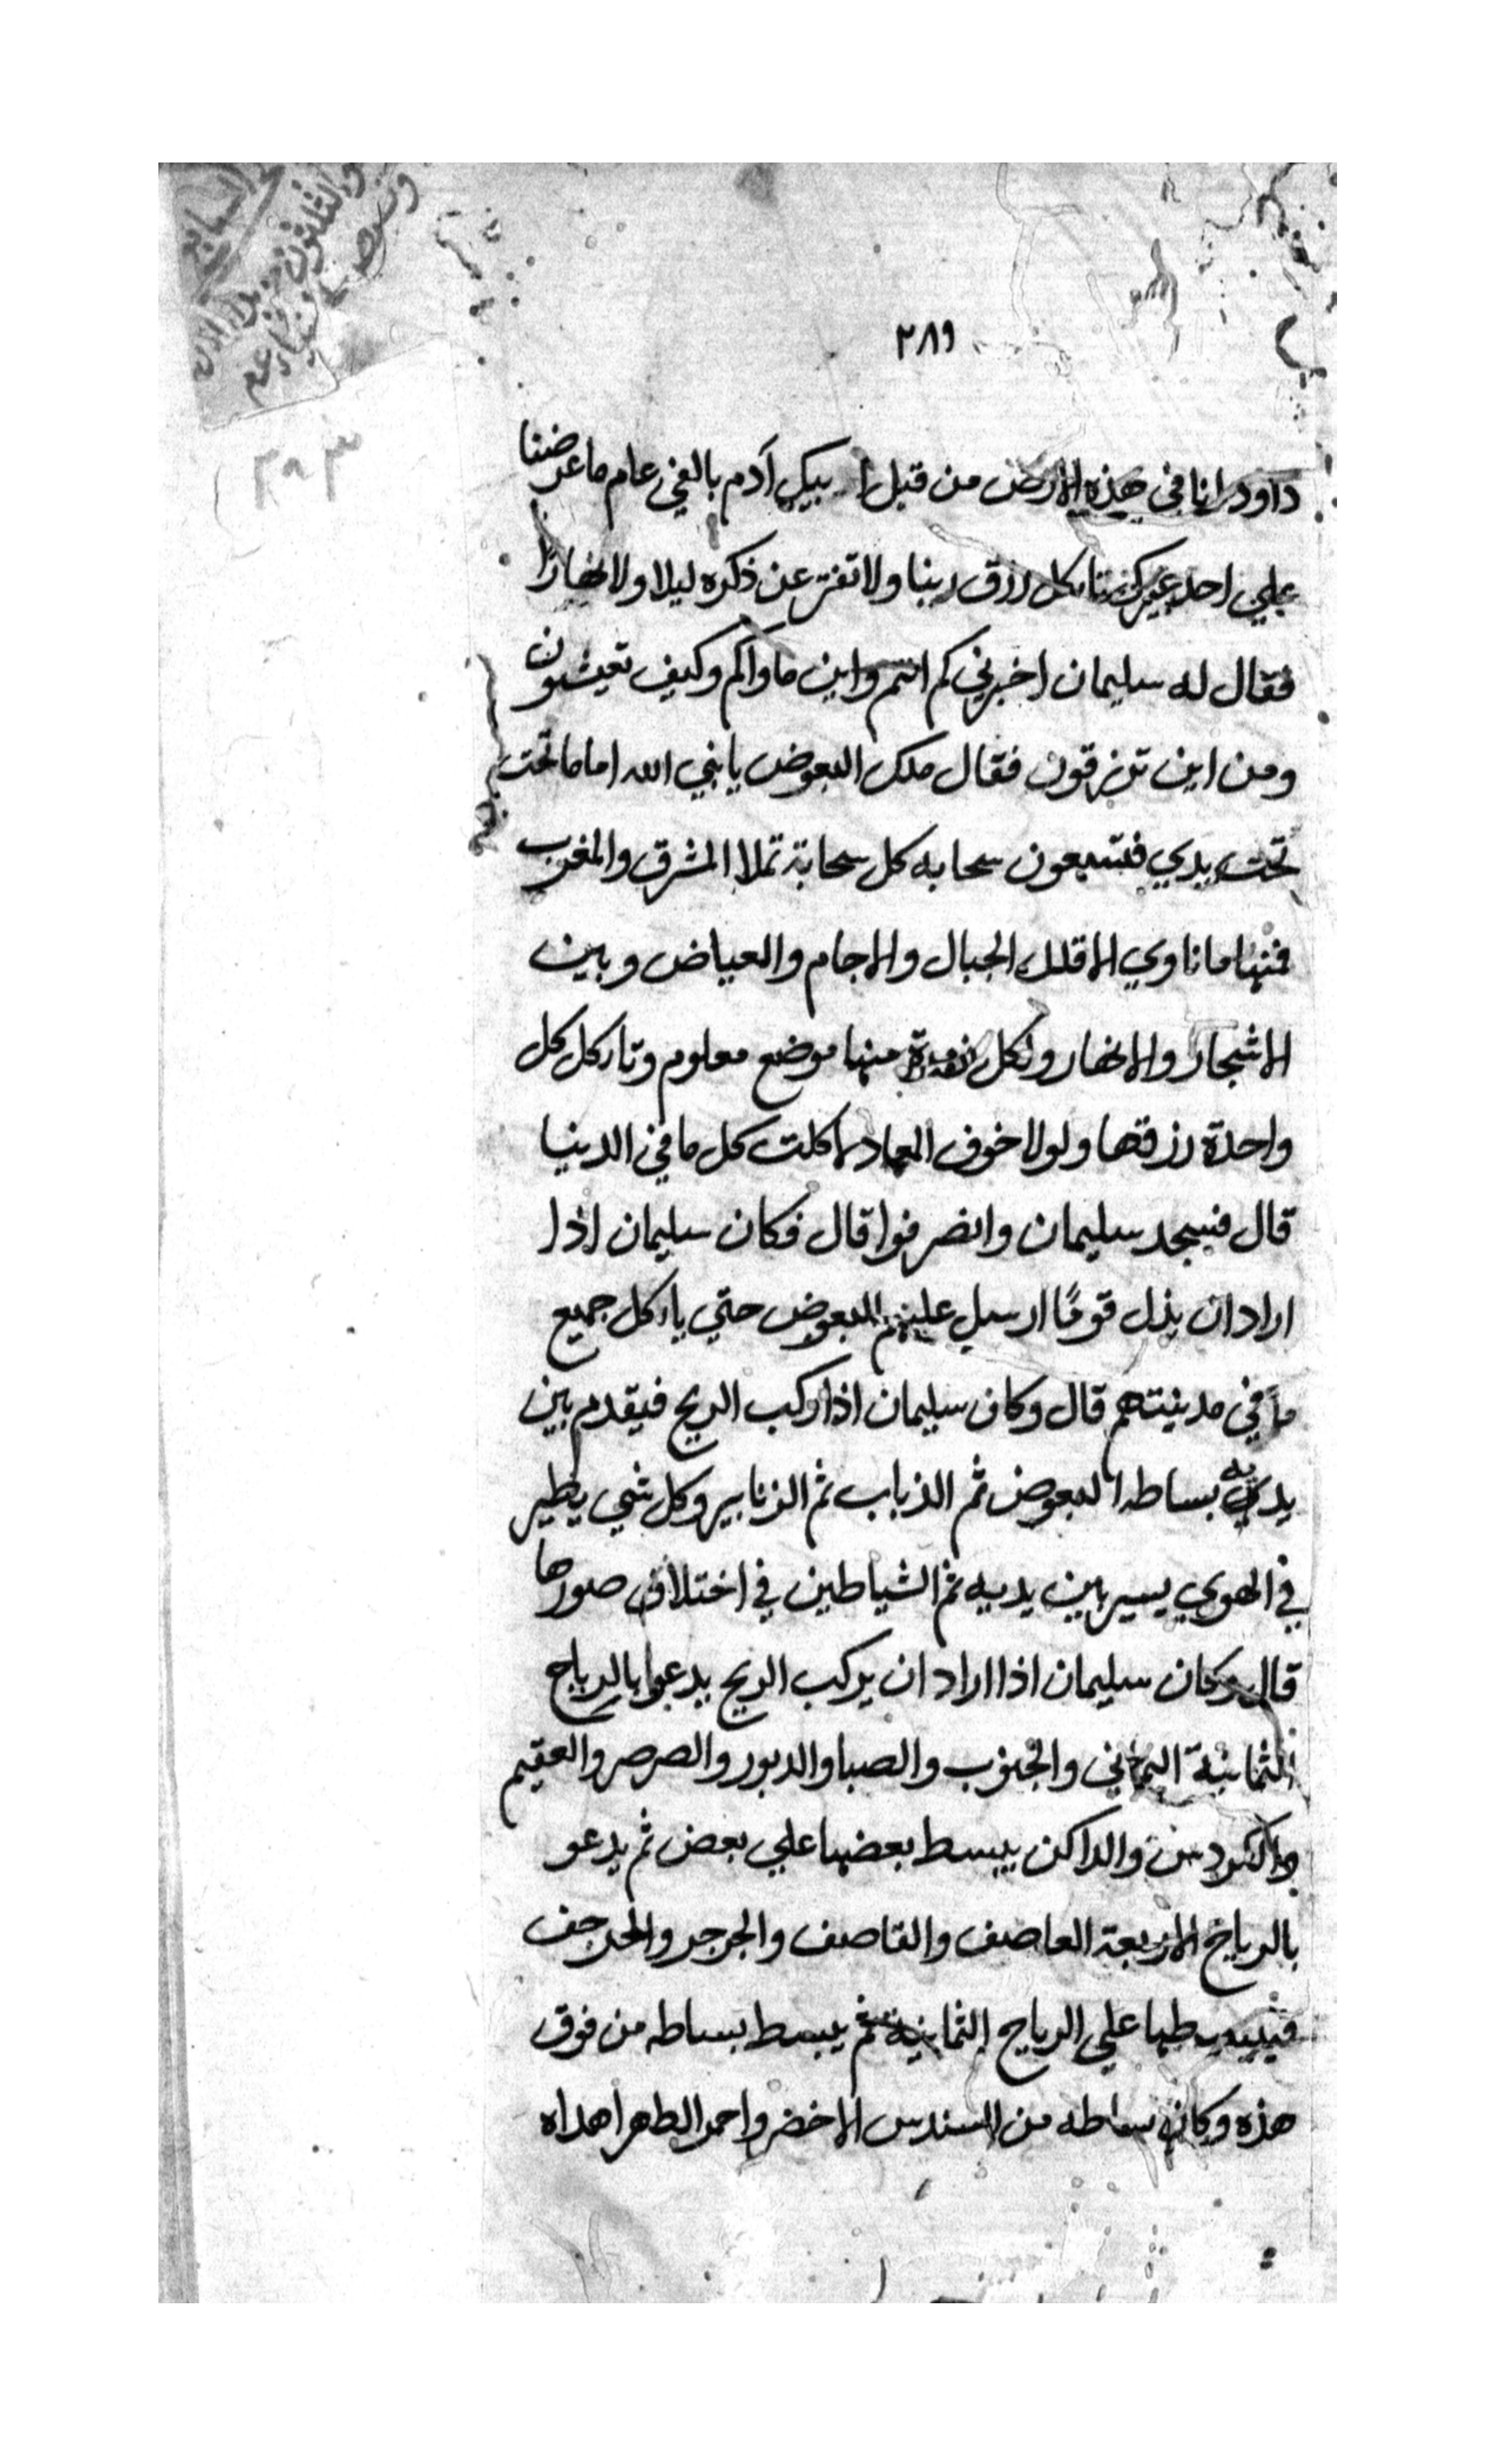 السابع
والثلثون
٢٨٩
٣٩٣
داود انا في هذه الارض من قبل ابيك آدم بالفي عام ما عرضنا
علي احد غيرك ناكل رزق ربنا ولا تفتر عن ذكره ليلا ولا نهارا
فقال له سليمان اخبرني كم انتم واين ماواكم وكيف تعيشون
ومن اين ترزقون فقال ملك البعوض يا نبي الله اما ما تحت
تحت يدي فتسبعون سحابه كل سحابة تملا المشرق والمغرب
فمنها ما ناوي الا قلل الجبال والاجام والعياض وبين
الاشجار والانهار ولكل منها موضع معلوم وتاركل كل
واحدة رزقها ولولا خوف المعاد لاكلت كل ما في الدنيا
قال فسجد سليمان وانصرفوا قال فكان سليمان اذا
اراد ان يذل قومًا ارسل عليهم البعوض حتي ياركل جميع
ما في مدينتهم قال وكان سليمان اذا ركب الريح فيقدم بين
يديه بساطه البعوض ثم الذباب ثم الزنابير وكل شي يطير
في الهوي يسير بين يديه ثم الشياطين في اختلاف صورها
قال وكان سليمان اذا اراد ان يركب الريح يدعوا بالرياح
الثمانية اليماني والجنوب والصبا والدبور والصرصر والعقيم
والكردس والداكن يبسط بعضها علي بعض ثم يدعو
بالرياح الاربعة العاصف والقاصف والجرجر والحرجف
فيبسطها علي الرياح الثمانية ثم يبسط بساطه من فوق
هذه وكان بساطه من السندس الاخضر واحمر الطهر اهداه